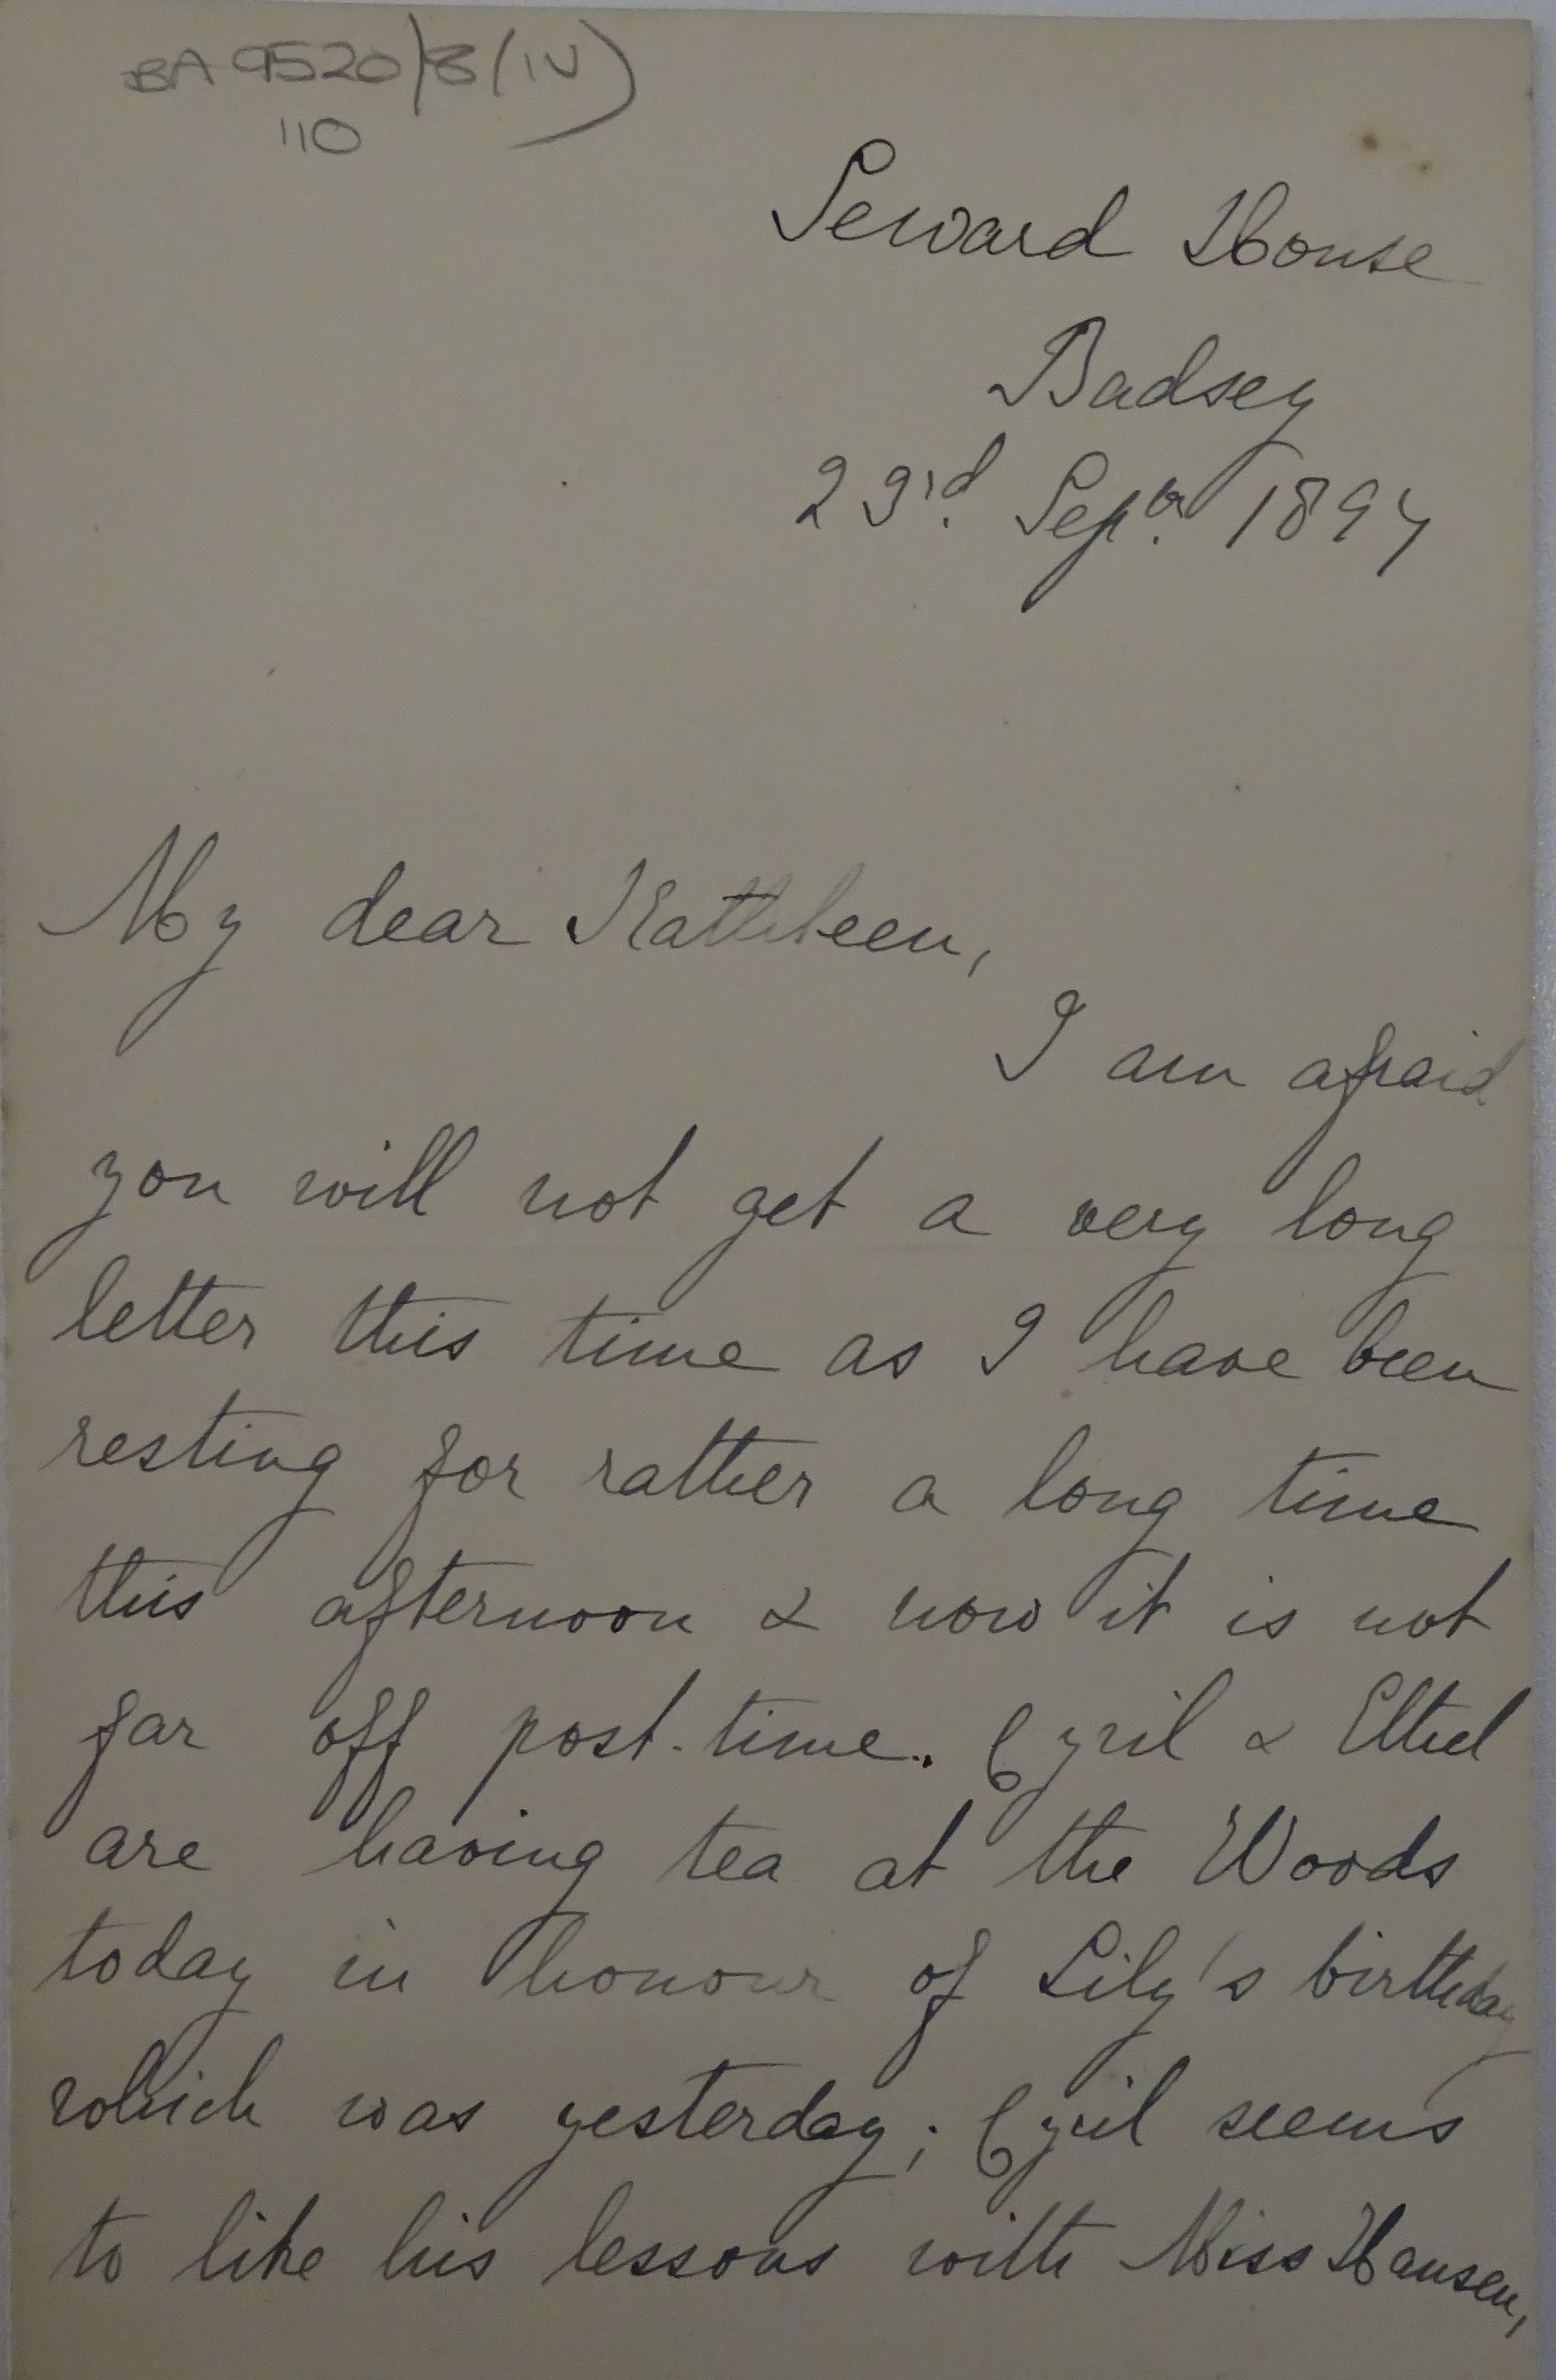 BA 9520/8(iv)
110
Seward House
Badsey
23rd. Sepbr. 1894
My dear Kathleen,
I am afraid
you will not get a very long
letter this time as I have been
resting for rather a long time
this afternoon & now it is not
far off post-time. Cyril & Ethel
are having tea at the Woods
today in honour of Lily's birthday
which was yesterday; Cyril seems
to like his lessons with Miss Hansen,